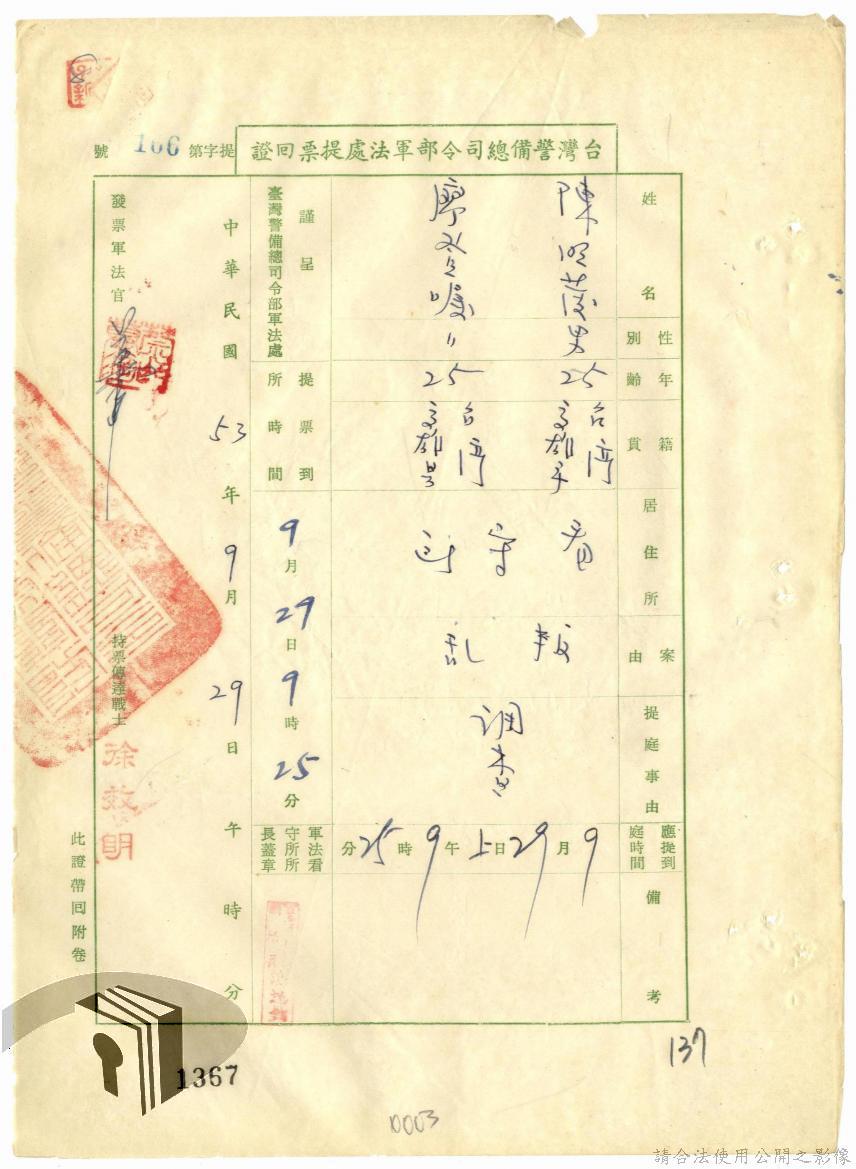 台灣警備總司令部軍法處提票回證
提字第 166 號
姓名
陳 男
廖 〃
性別
年齡
25
25
籍貫
台灣
高雄市
台灣
高雄县
居住所
看守所
案由
叛乱
提庭事由
調查
應提到庭時間
9月29日上午9時25分
備考
謹呈
臺灣警備總司令部軍法處
提票到所時間
9月29日9時25分
軍法看守所所長蓋章
中華民國 53 年 9 月 29 日 午 時 分
發票軍法官
持票傳達戰士
徐效明
此證帶回附卷
137
1367
0003
請合法使用公開之影像